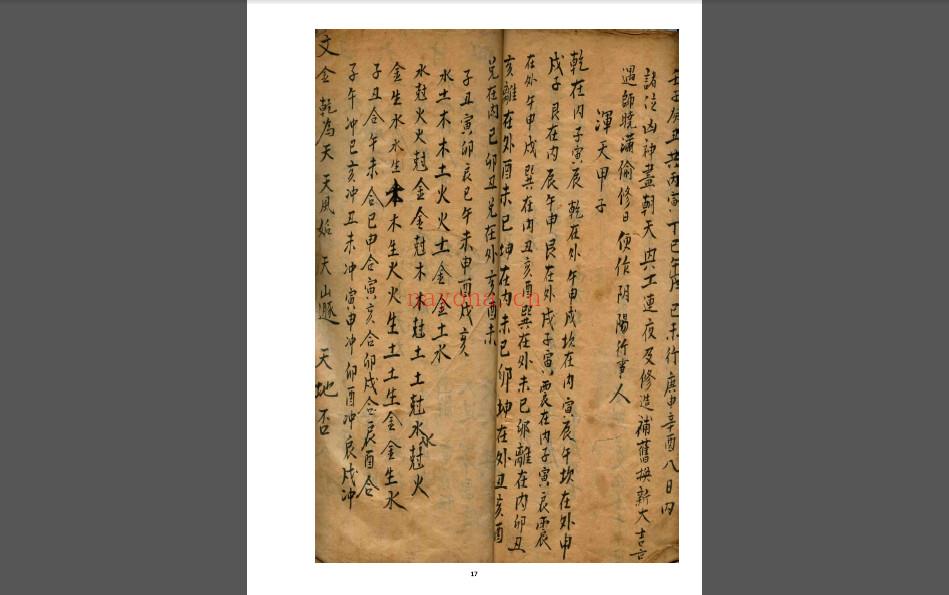 壬子庚丑共丙寅丁巳午戌己未行庚申辛酉八日内
諸位凶神盡朝天與工連夜及修造補舊換新大吉言
遇師曉滿偷修日便作阴陽行事人
渾天甲子
乾在内子寅辰乾在外午申戌坎在内寅辰午坎在外申
戌子艮在内辰午申艮在外戌子寅震在内子寅辰震
在外午申戌巽在内丑亥酉巽在外未巳卯離在内卯丑
亥離在外酉未巳坤在内未巳卯坤在外丑亥酉
兑在内巳卯丑兑在外亥酉未
子丑寅卯辰巳午未申酉戌亥
水土木木土火火土金金土水
水尅火火尅金金尅木木尅土土尅水水尅火
金生水水生木木生火火生土土生金金生水
子丑合午未合巳申合寅亥合卯戌合辰酉合
子午冲巳亥冲丑未冲寅申冲卯酉冲辰戌冲
文金乾為天天風姤天山遯天地否
nayona.cn
17